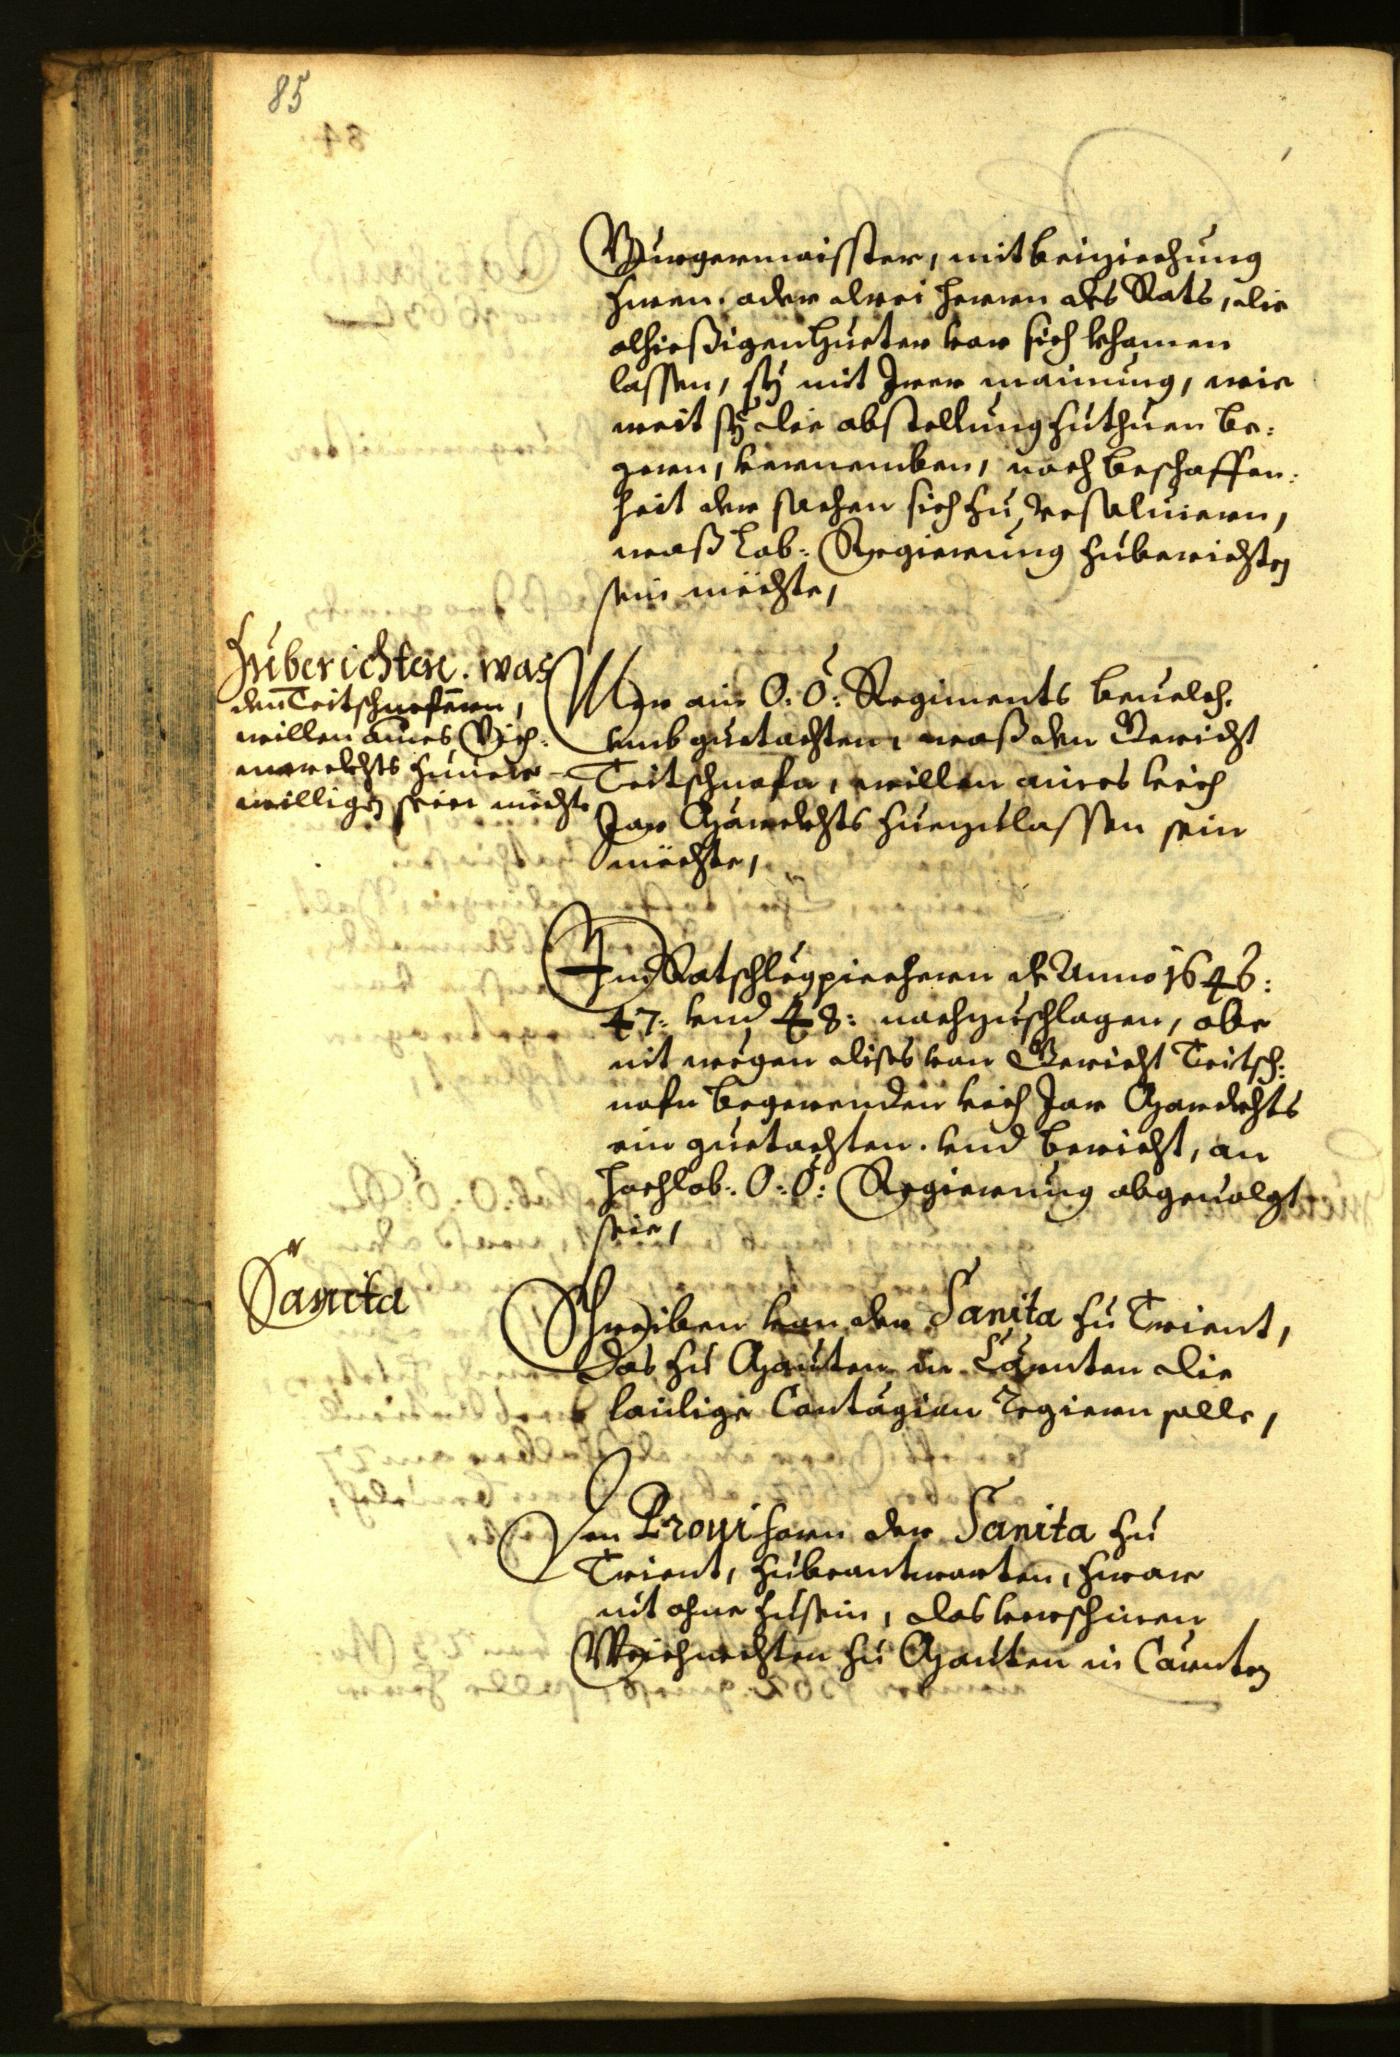 85
Burgermaisster, mit beiziechung
zwen. oder drei herrn des Rats, die
alhießigen Hueter vor sich khomen
lassen, sy mit Irer mainung, wie
weit sy die abstellung zuthuen be:
gern, vernemben, nach beschaffen:
heit der sachen sich zu resoluiern,
waß Lob: Regierung zuberichten
sein möchte,
Zuberichten. was
den Teitschnofern,
willen aines Vich:
marckhts zuuer-
willigen sein möchte
Uber ain O: Ö: Regiments beuelch.
umb guetachten, waß den Gericht
Teitschnofn, willen aines viech
Jar Marckhts zuezulassen sein
möchte,
In Ratschlugpiechern de Anno 1646:
47: vnd 48: nachzuschlagen, obe
nit wegen dises von Gericht Teitsch:
nofn begerenden viech Jar Marckhts
ein guetachten. vnd bericht, an
hochlob: O: Ö: Regierung abgeuolgt
seie,
Sanita
Schreiben von der Sanita zu Trient,
das zu Mauten in Cärnten die
laidige Contagion regiern solle,
Den Prouisorn der Sanita zu
Trient, zubeantworten, zwar
nit ohne zusein, das verschinen
Weichnechten zu Mauten in Cärnten